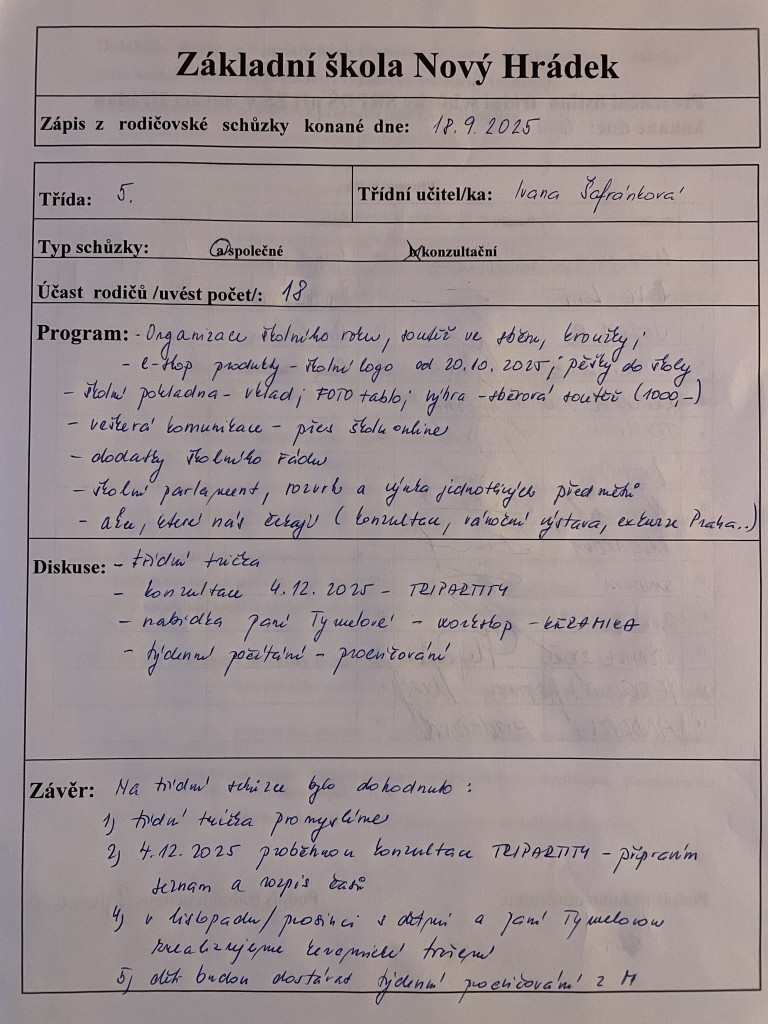 Základní škola Nový Hrádek
Zápis z rodičovské schůzky konané dne: 18.9.2025
Třída: 5. Třídní učitel/ka: Ivana Šafránková
Typ schůzky: a/společné b/konzultační
Účast rodičů /uvést počet/: 18
Program: - Organizace školního roku, soutěž ve sběru, kroužky;
- e-shop produkty - školní logo od 20.10. 2025; pěšky do školy
- školní pokladna - vklad; FOTO tablo; výhra - sběrová soutěž (1000,-)
- veškerá komunikace - přes školu online
- dodatky školního řádu
- školní parlament, rozvrh a výuka jednotlivých předmětů
- akce, které nás čekají (konzultace, vánoční výstava, exkurze Praha..)
Diskuse: - třídní trička
- konzultace 4.12. 2025 - TRIPARTITY
- nabídka paní Tymelové - workshop - KERAMIKA
- týdenní počítání - procvičování
Závěr: Na třídní schůzce bylo dohodnuto :
1) třídní trička promyslíme
2) 4.12. 2025 proběhnou konzultace TRIPARTITY - připravím
seznam a rozpis časů
4) v listopadu/prosinci s dětmi a paní Tymelovou
zrealizujeme keramické tvoření
5) děti budou dostávat týdenní procvičování z M